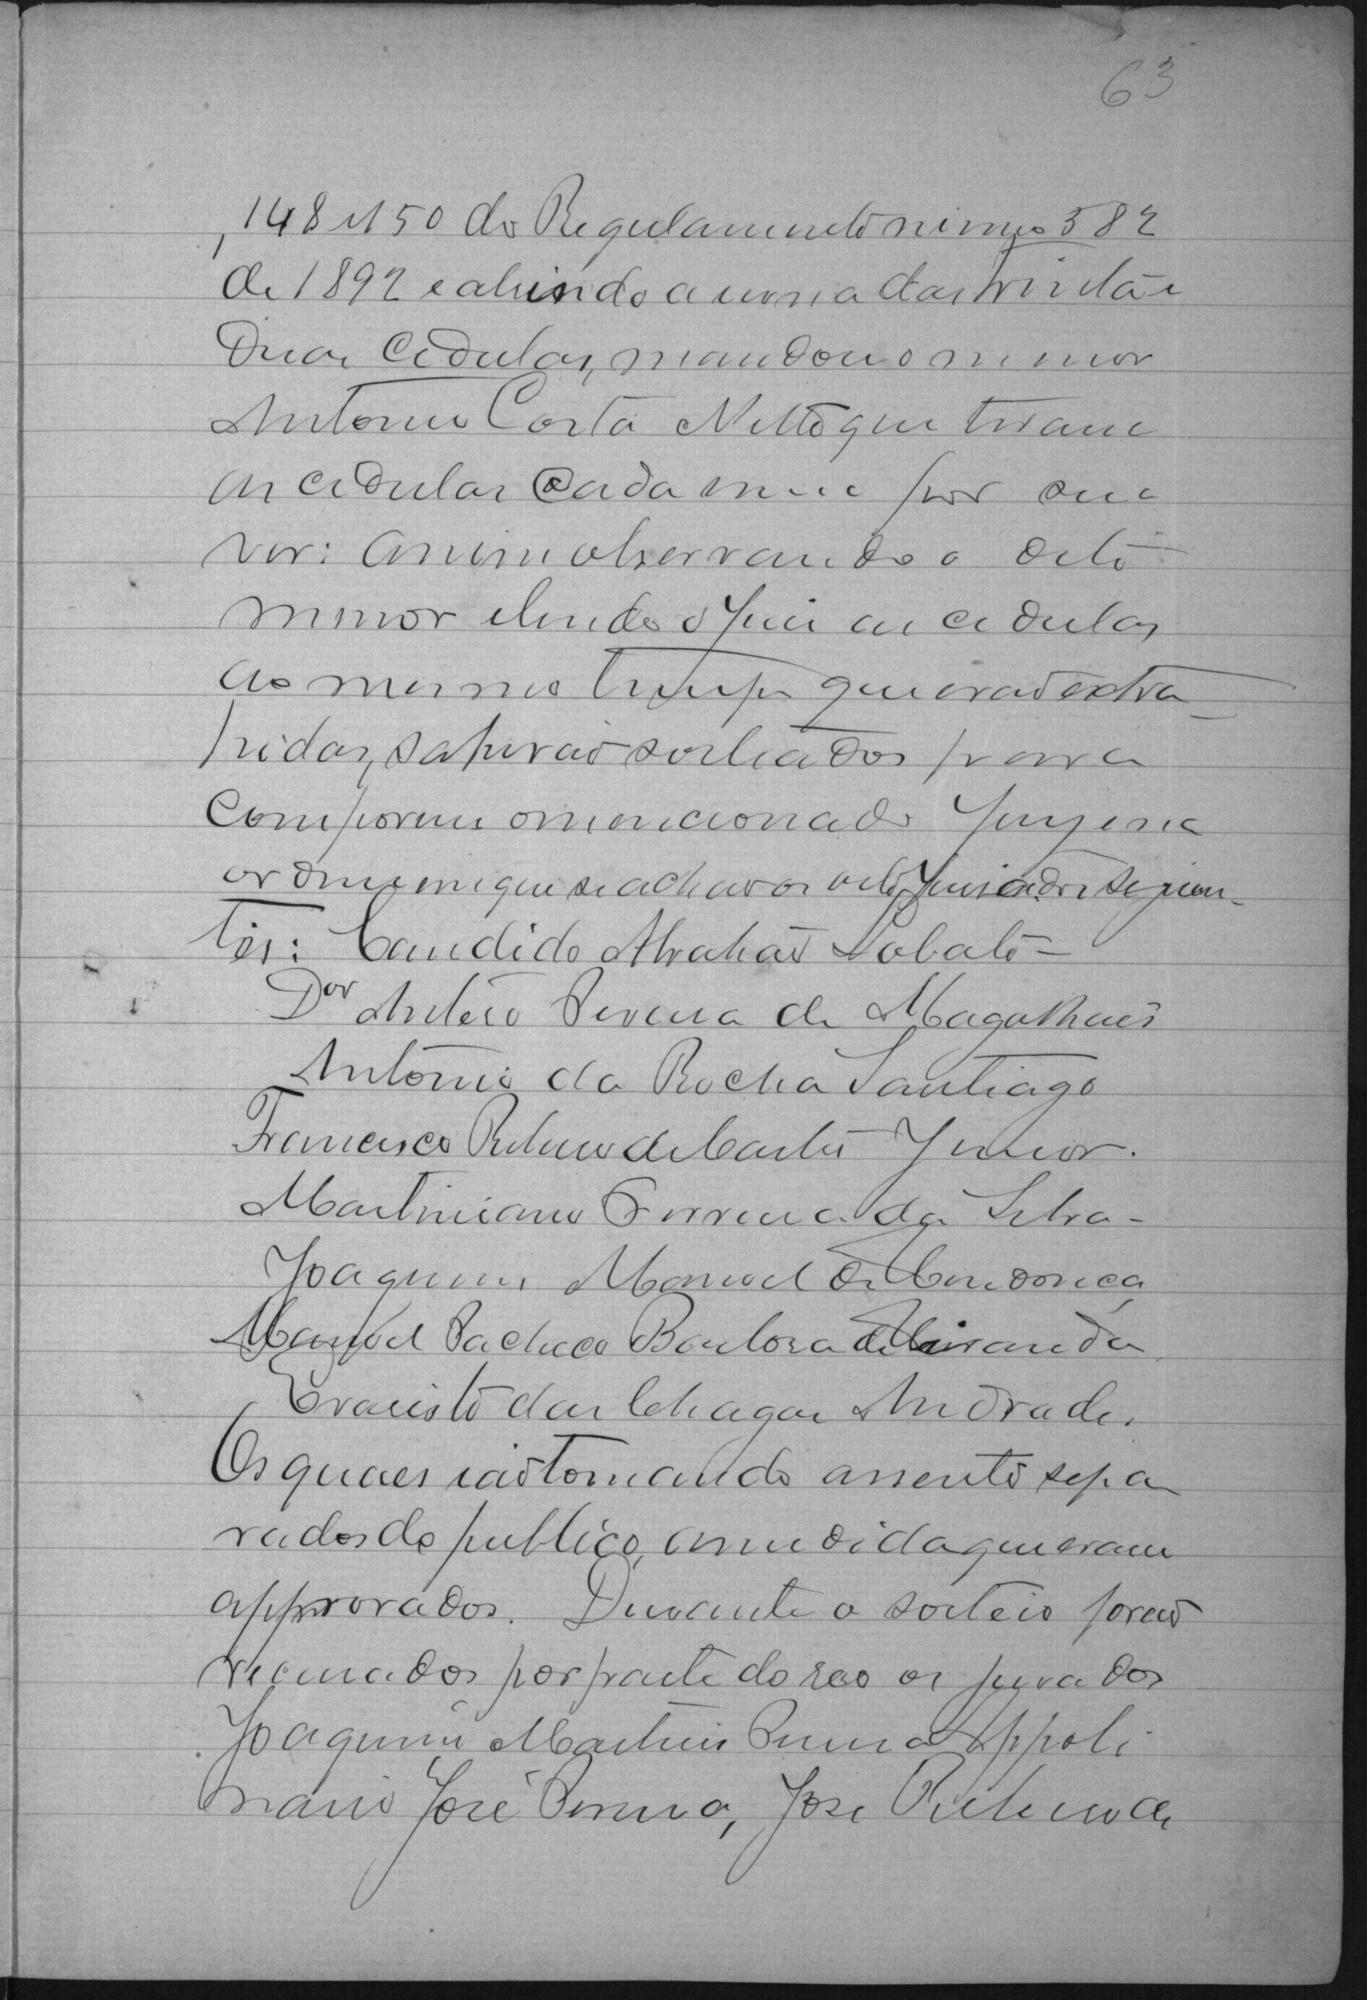 63
, 148 e 150 do Regulamento numero 582
de 1892 e abrindo a urna das trinta e
duas cedulas, mandou o menor
Antonio Costa Netto que tirasse
as cedulas cada uma por sua
vez: assim observando o dito
menor e lendo o Juiz as cedulas
ao mesmo tempo que erão extra_
hidas, sahirão sorteados para
comporem o mencionado Jury e na
ordem em que se achavão oito Jurados seguin_
tes: Candido Abrahão Lobato -
Dor Antero Pereira de Magalhães
Antonio da Rocha Santiago
Francisco Ribeiro de Castro Junior.
Martiniano Ferreira da Silva -
Joaquim Manoel de Mendonça
Manoel Pacheco Barbosa de Miranda
Evaristo das Chagas Andrade.
Os quaes ião tomando assento sepa
rados do publico, a medida que eram
approvados. Durante o sorteio forão
recusados por parte do reo os jurados
Joaquim Martins Appoli
nario José Pereira, José Ribeiro de